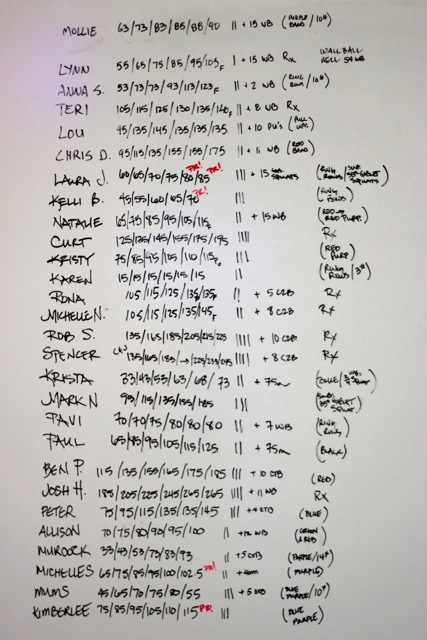 MOLLIE 63/73/83/85/88/90 || + 15 WB (PURPLE BAND /10#)
LYNN 55/65/75/85/95/105F | + 15 WB Rx WALL BALL
ANNA S. 53/73/73/93/113/123F || + 2 WB (RING ROWS /10#)
TERI 105/115/125/130/135/140F || + 8 WB Rx
LOU 95/135/145/135/135/135 || + 10 PU's
CHRIS D. 95/115/135/155/155/175 || + 11 WB (RED BAND)
LAURA J. 60/65/70/75/80/85 PR! PR! ||| + 15 SQUATS (RING ROWS / SQUATS)
KELLI B. 45/55/60/65/70 PR! ||| (RING ROWS)
NATALIE 65/75/85/95/105/115F || + 15 WB
CURT 125/135/145/155/175/195 |||| Rx
KRISTY 75/85/95/105/110/115F ||| (RED PURP)
KAREN 15/15/15/15/15/15 || (RING ROWS /3#)
RONA 105/115/125/135/135F || + 5 C2B Rx
MICHELLE N. 105/115/125/135/145F || + 8 C2B Rx
ROB S. 135/165/185/205/215/225 |||| + 10 C2B Rx
SPENCER 135/165/185/→/225/235/ |||| + 8 C2B Rx
KRISTA 33/43/53/63/68/73 || + 75m
MARK N 95/115/135/155/185 |||
PAVI 70/70/75/80/80/80 || + 7 WB (RING ROWS)
PAUL 65/85/95/105/115/125 || + 75m (BLACK)
BEN P. 115/135/155/165/175/185 ||| + 10 CTB (RED)
JOSH H. 185/205/225/245/265/265 |||| + 11 WB Rx
PETER 75/95/115/135/135/145 ||| + 4 CTB (BLUE)
ALLISON 70/75/80/90/95/100 || + 12 WB (GREEN & RED)
MURDOCK 33/43/53/73/83/93 || + 5 CTB (PURPLE/14#)
MICHELLE S 65/75/85/95/100/102.5 PR! || + 40m (PURPLE)
MIMS 45/65/70/75/80/55 || + 5 WB (BLUE PURPLE /10#)
KIMBERLEE 75/85/95/105/110/115 PR. ||| (BLUE PURPLE)